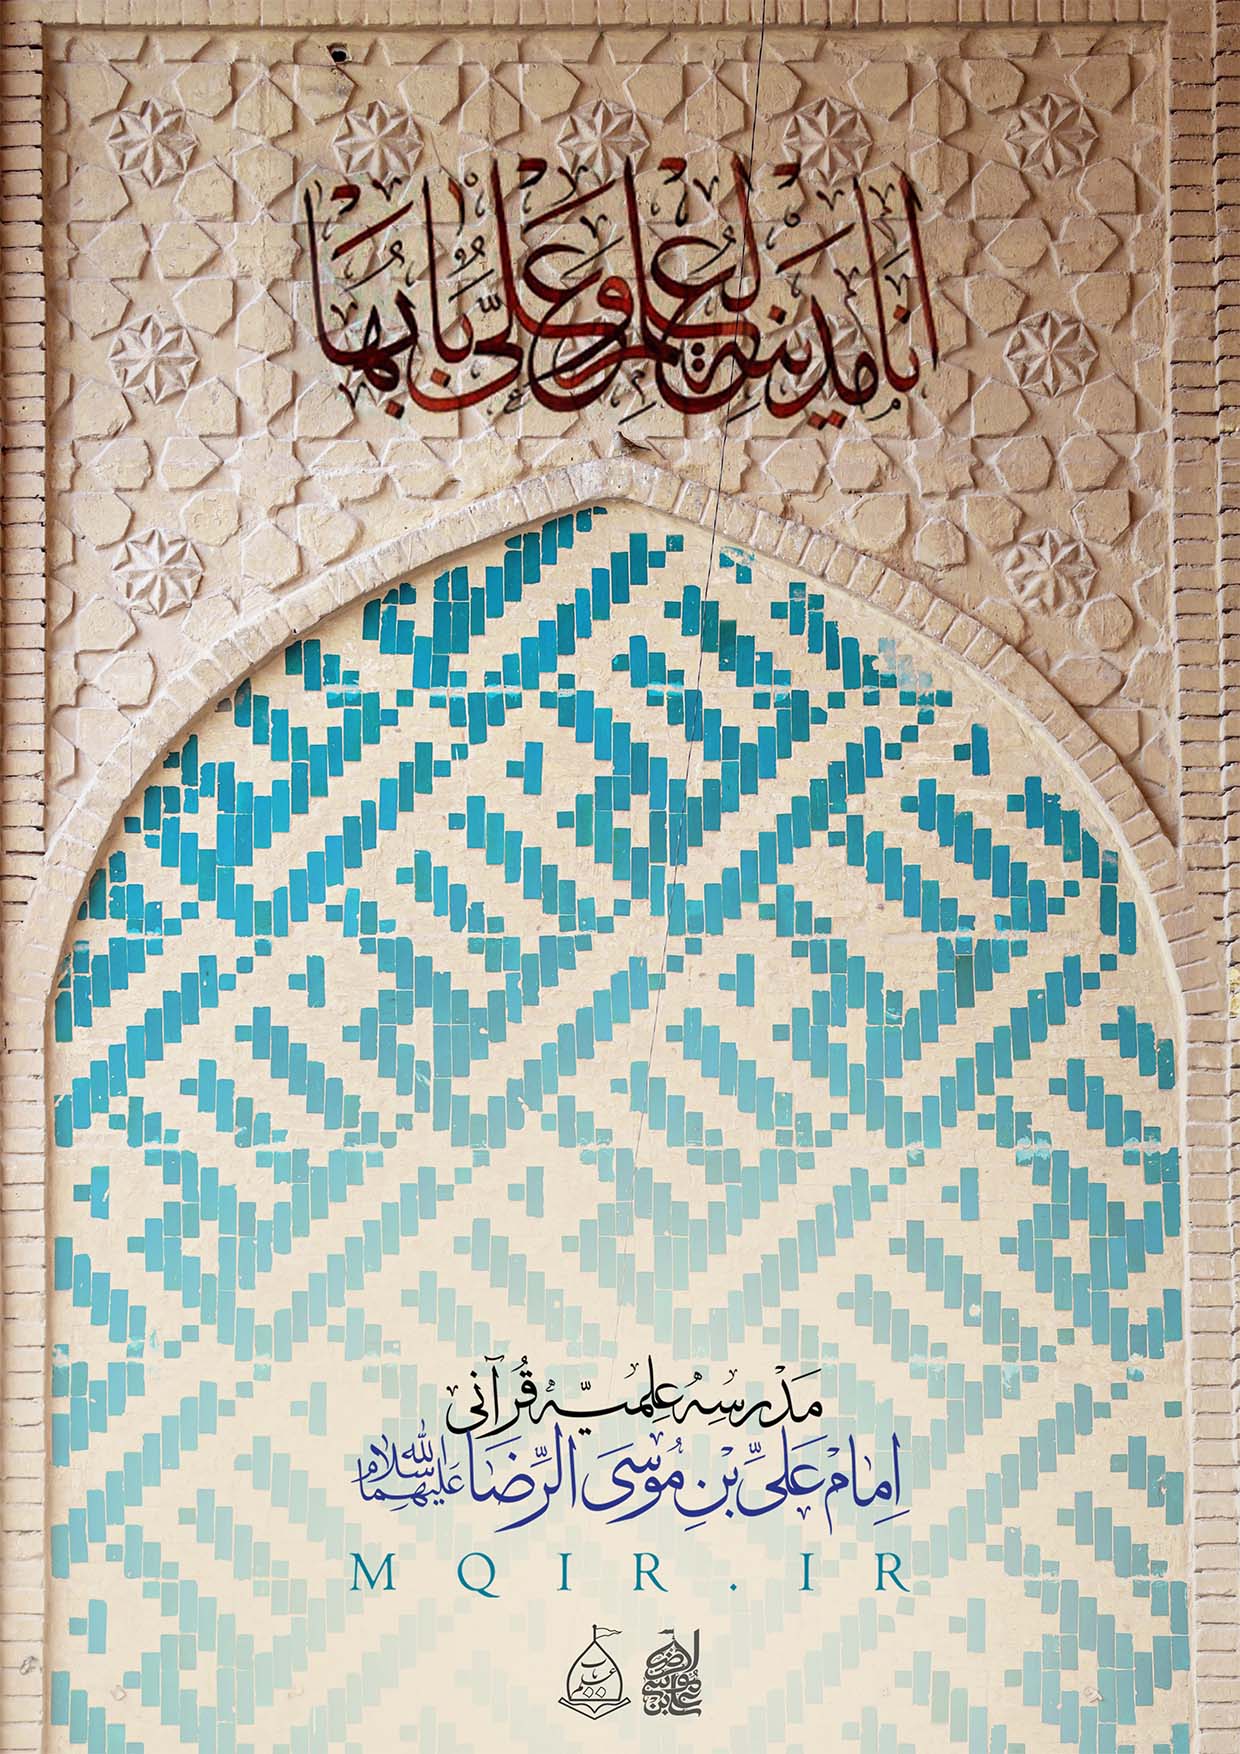 انا مدينة العلم و عليّ بابها
مَدرسهٔ عِلمیّهٔ قُرآنی
اِمام عَلیِّ بْنِ مُوسَی الرِّضَا عَلَیهِمَا السَّلام
MQIR.IR